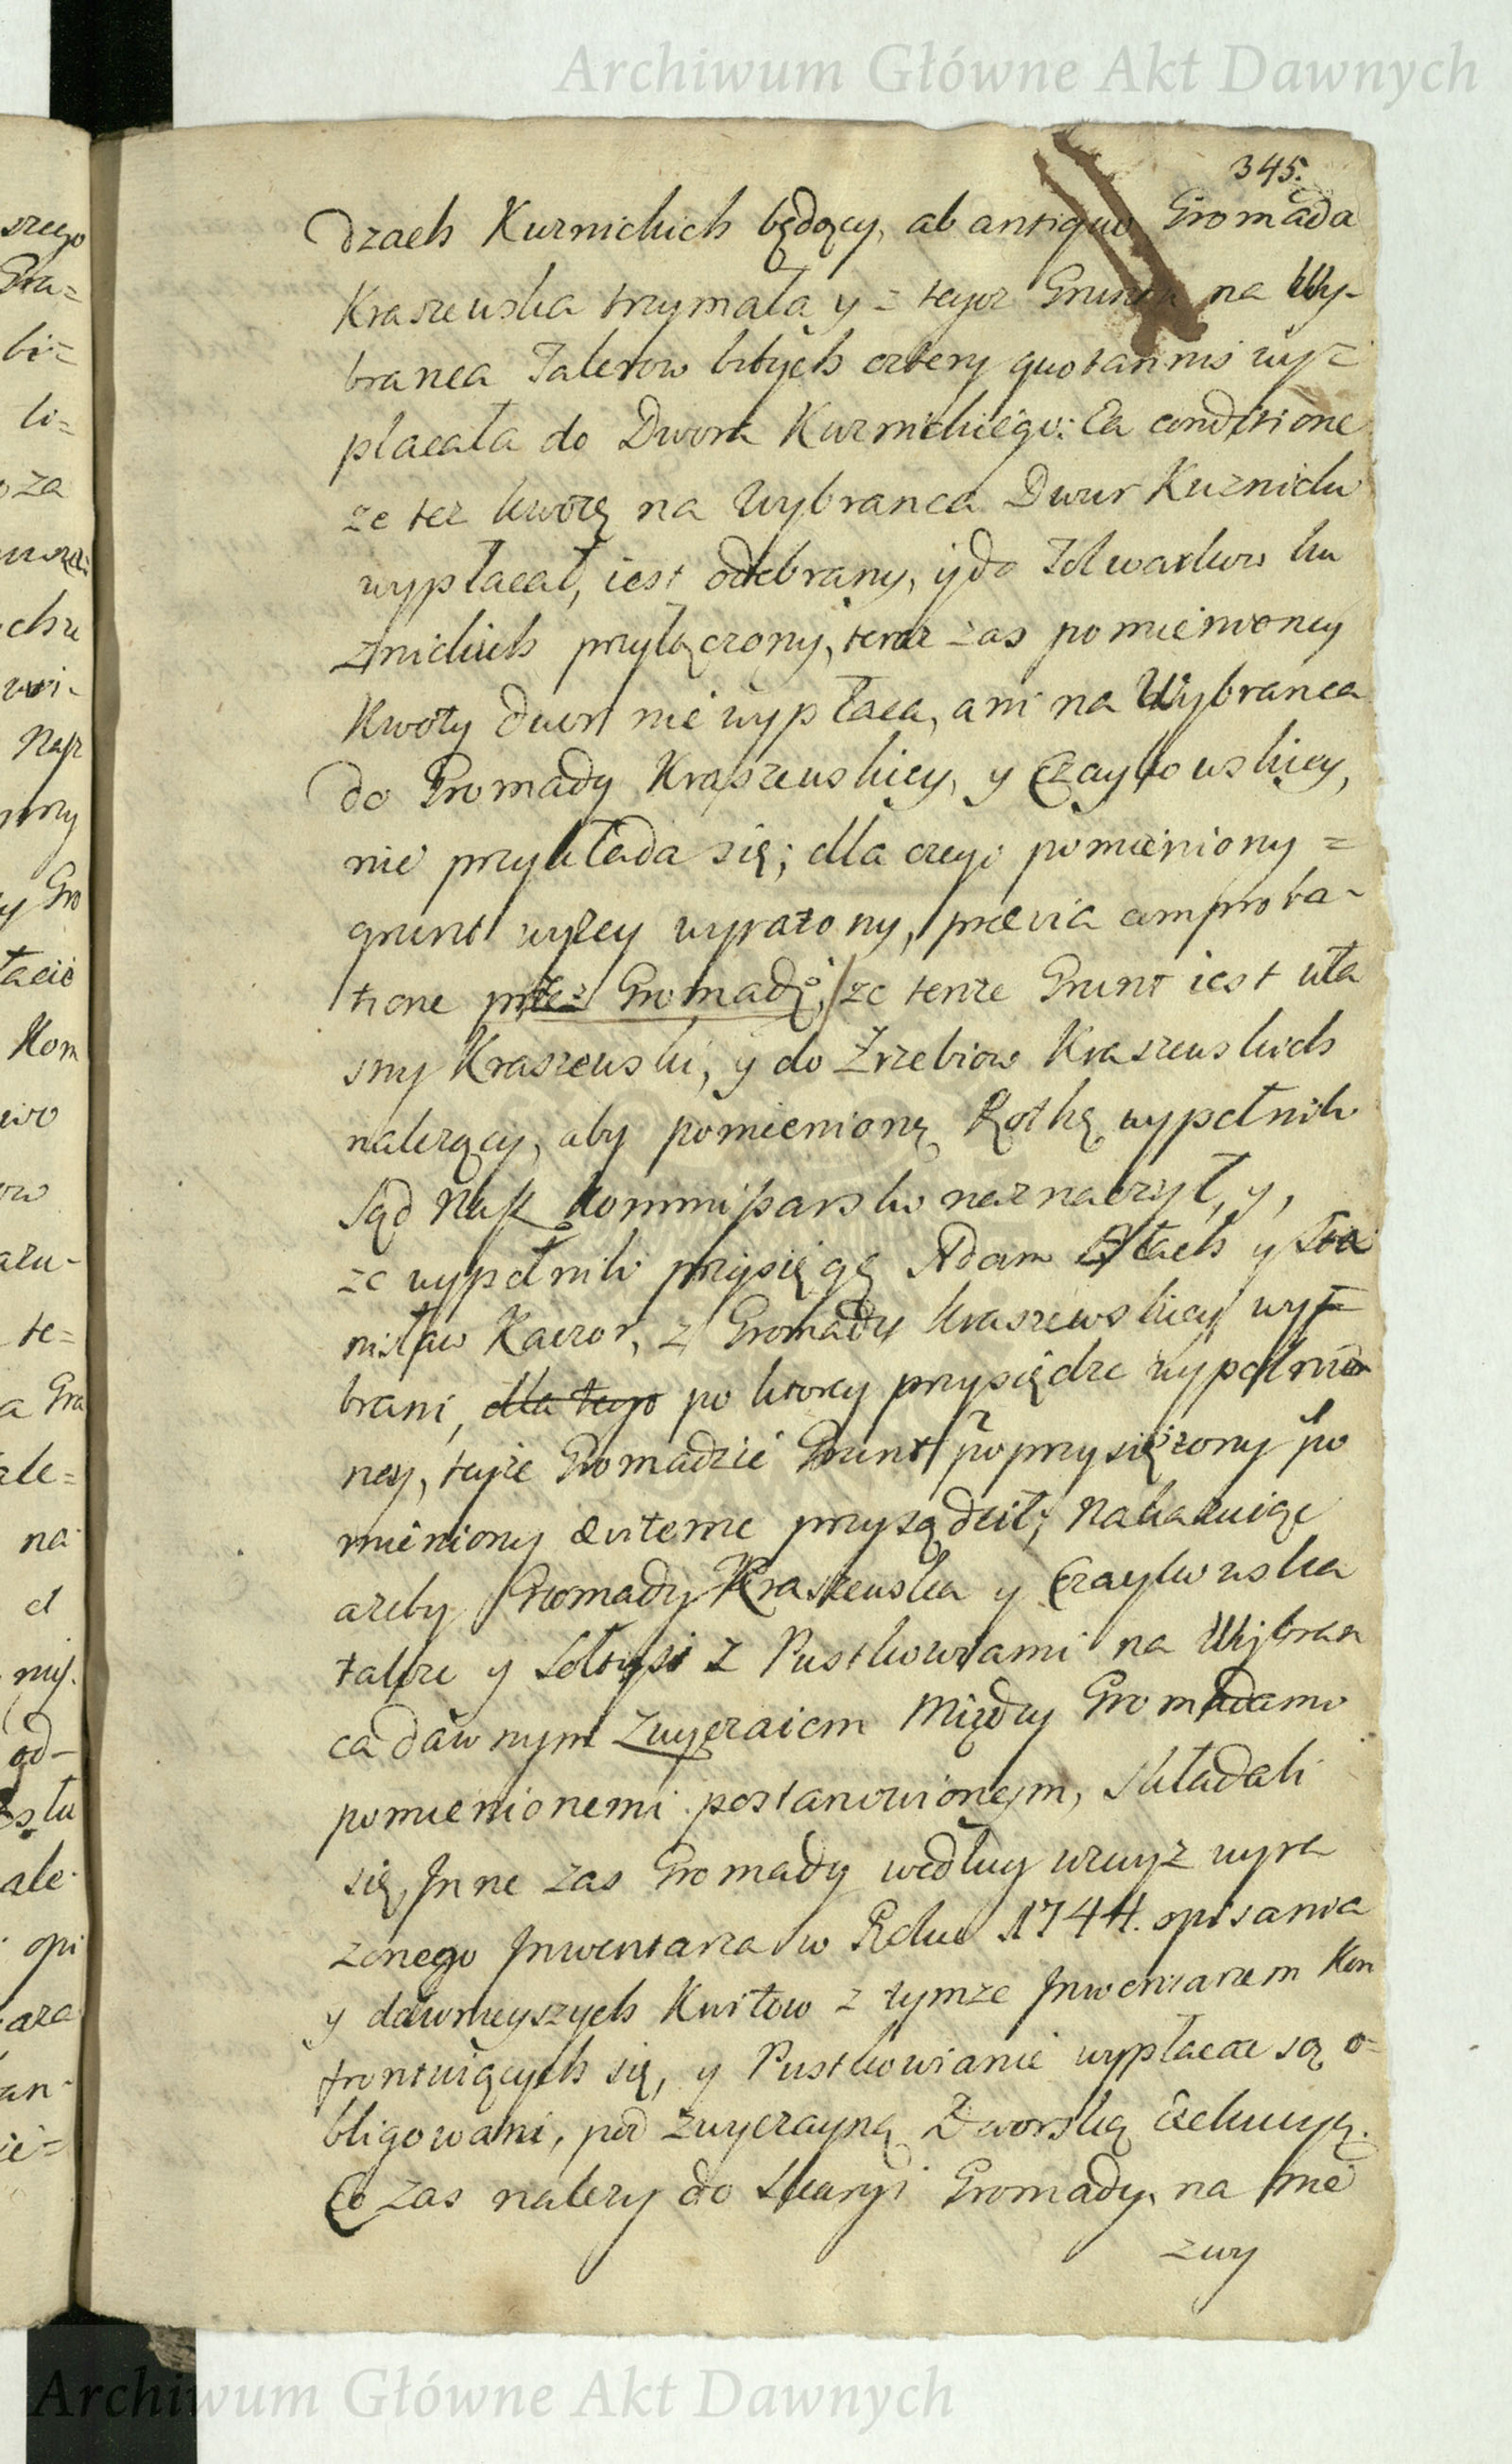 Archiwum Główne Akt Dawnych
345.
dzach Kuznickich będący, ab antiquo Gromada
Kraszewska trzymała y z tegoz Gruntu na Wy-
branca Talerow bitych cztery quotannis wy=
płacała do Dwora Kuznickiego: Ea conditione
ze tez kwotę na Wybranca Dwur Kuznicki
wypłacał, iest odebrany, y do Folwarkow Ku
znickich przyłączony, teraz zas pomienioney
Kwoty dwor nie wypłaca, ani na Wybranca
do Gromady Kraszewskiey, y Czaykowskiey,
nie przykłada się; dla czego pomieniony =
grunt wyzey wyrazony, prævia comproba-
tione przez Gromadę, ze tenze Grunt iest wła
sny Kraszewski, y do Zrzebiow Kraszewskich
nalezący, aby pomienioną Rotkę wypełnili
Sąd Nasz Kommissarski naznaczył, y,
ze wypełnili przysięgę Adam Stach y Sta
nisław Kaczor, z Gromady Kraszewskiey wy=
brani, dla tego po ktorey przysiędze wypełnio
ney, teyze Gromadzie Grunt poprzysięzony po
mieniony æviterne przysądził; nakazuiąc
azeby Gromady Kraszewska y Czaykowska
takze y Sołtysi z Pustkowiami na Wybran
ca dawnym zwyczaiem Między Gromadami
pomienionemi postanowionym, składali
się, Inne zas Gromady według wzwyz wyra
zonego Inwentarza w Roku 1744. opisania
y dawnieyszych Kwitow z tymze Inwentarzem Kon
frontuiących się, y Pustkowianie wypłacac są o=
bligowani, pod zwyczayną Dworską Exekucyą.
Co zas nalezy do Skargi Gromady, na nie
zwy
Archiwum Główne Akt Dawnych